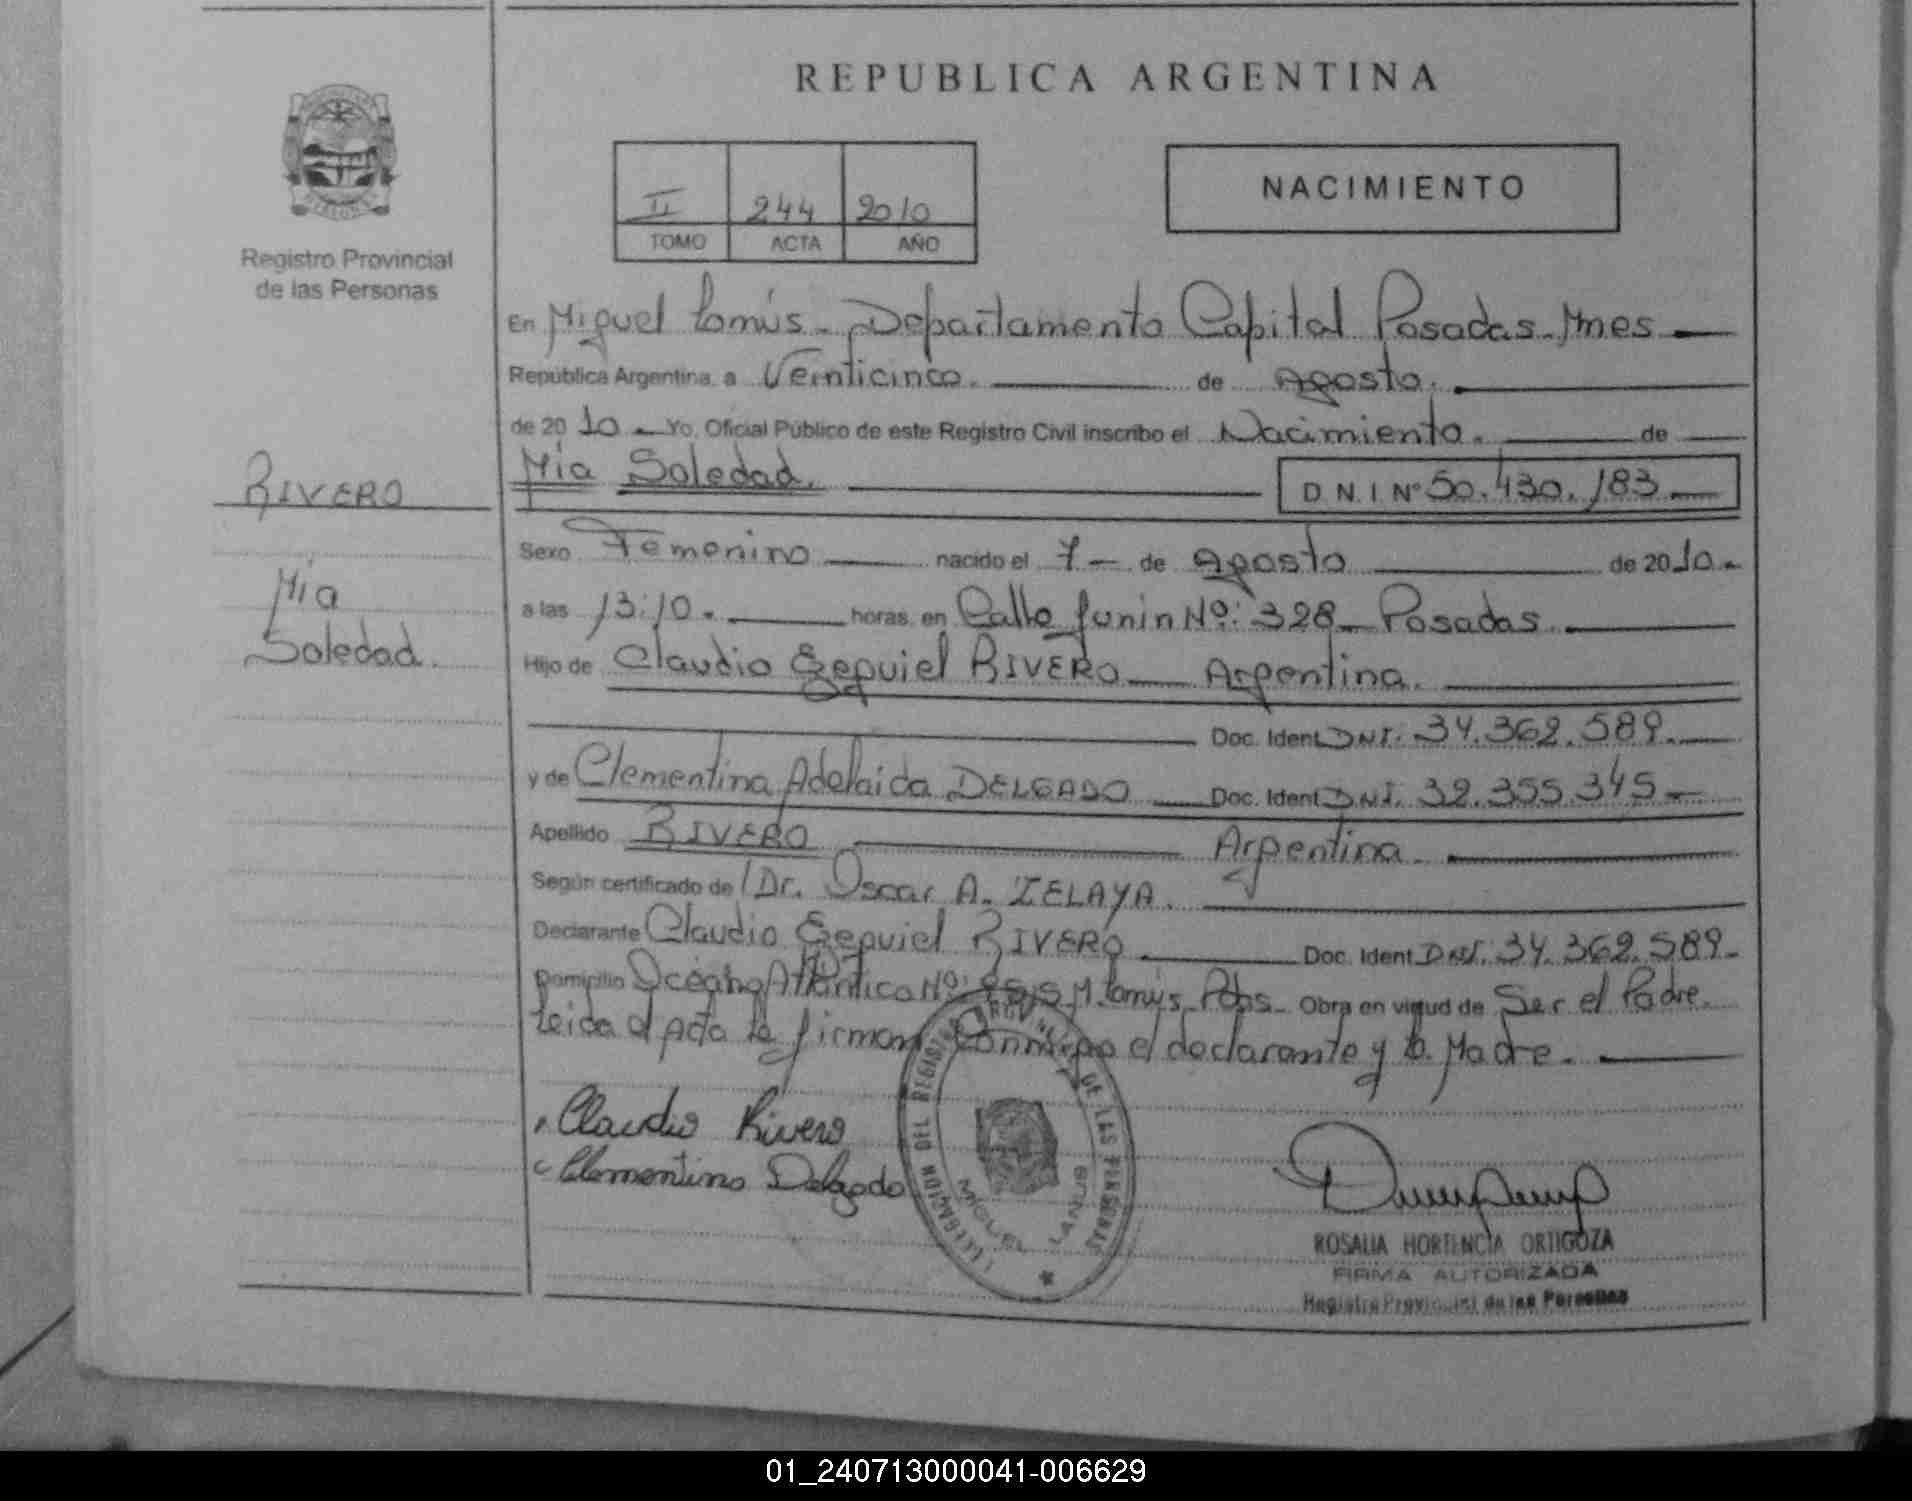 REPUBLICA ARGENTINA
Registro Provincial
de las Personas
II 244 2010
TOMO ACTA AÑO
NACIMIENTO
En Miguel Lanús - Departamento Capital Posadas - Mnes
República Argentina, a Veinticinco. de Agosto.
de 2010 - Yo, Oficial Público de este Registro Civil inscribo el Nacimiento. de
Mía Soledad. D.N.I. Nº 50.430.183
RIVERO
Mía
Soledad.
Sexo Femenino nacido el 7 - de Agosto de 2010 -
a las 13:10. horas, en Calle Junin Nº: 328 - Posadas.
Hijo de Claudio Ezequiel RIVERO Argentina.
Doc. Ident DNI. 34.362.589.
y de Clementina Adelaida DELGADO Doc. Ident DNI. 32.355.345 -
Apellido RIVERO Argentina.
Según certificado de Dr. Oscar A. ZELAYA.
Declarante Claudio Ezequiel RIVERO Doc. Ident DNI. 34.362.589 -
Domicilio Océano Atlántico Nº: M. Lanús - Pdas - Obra en virtud de Ser el Padre.
Leida el Acta la firman Conmigo el declarante y la Madre.
Claudio Rivero
Clementina Delgado
DELEGACION DEL REGISTRO PROVINCIAL DE LAS PERSONAS
MIGUEL LANUS
ROSALIA HORTENCIA ORTIGOZA
FIRMA AUTORIZADA
Registro Provincial de las Personas
01_240713000041-006629